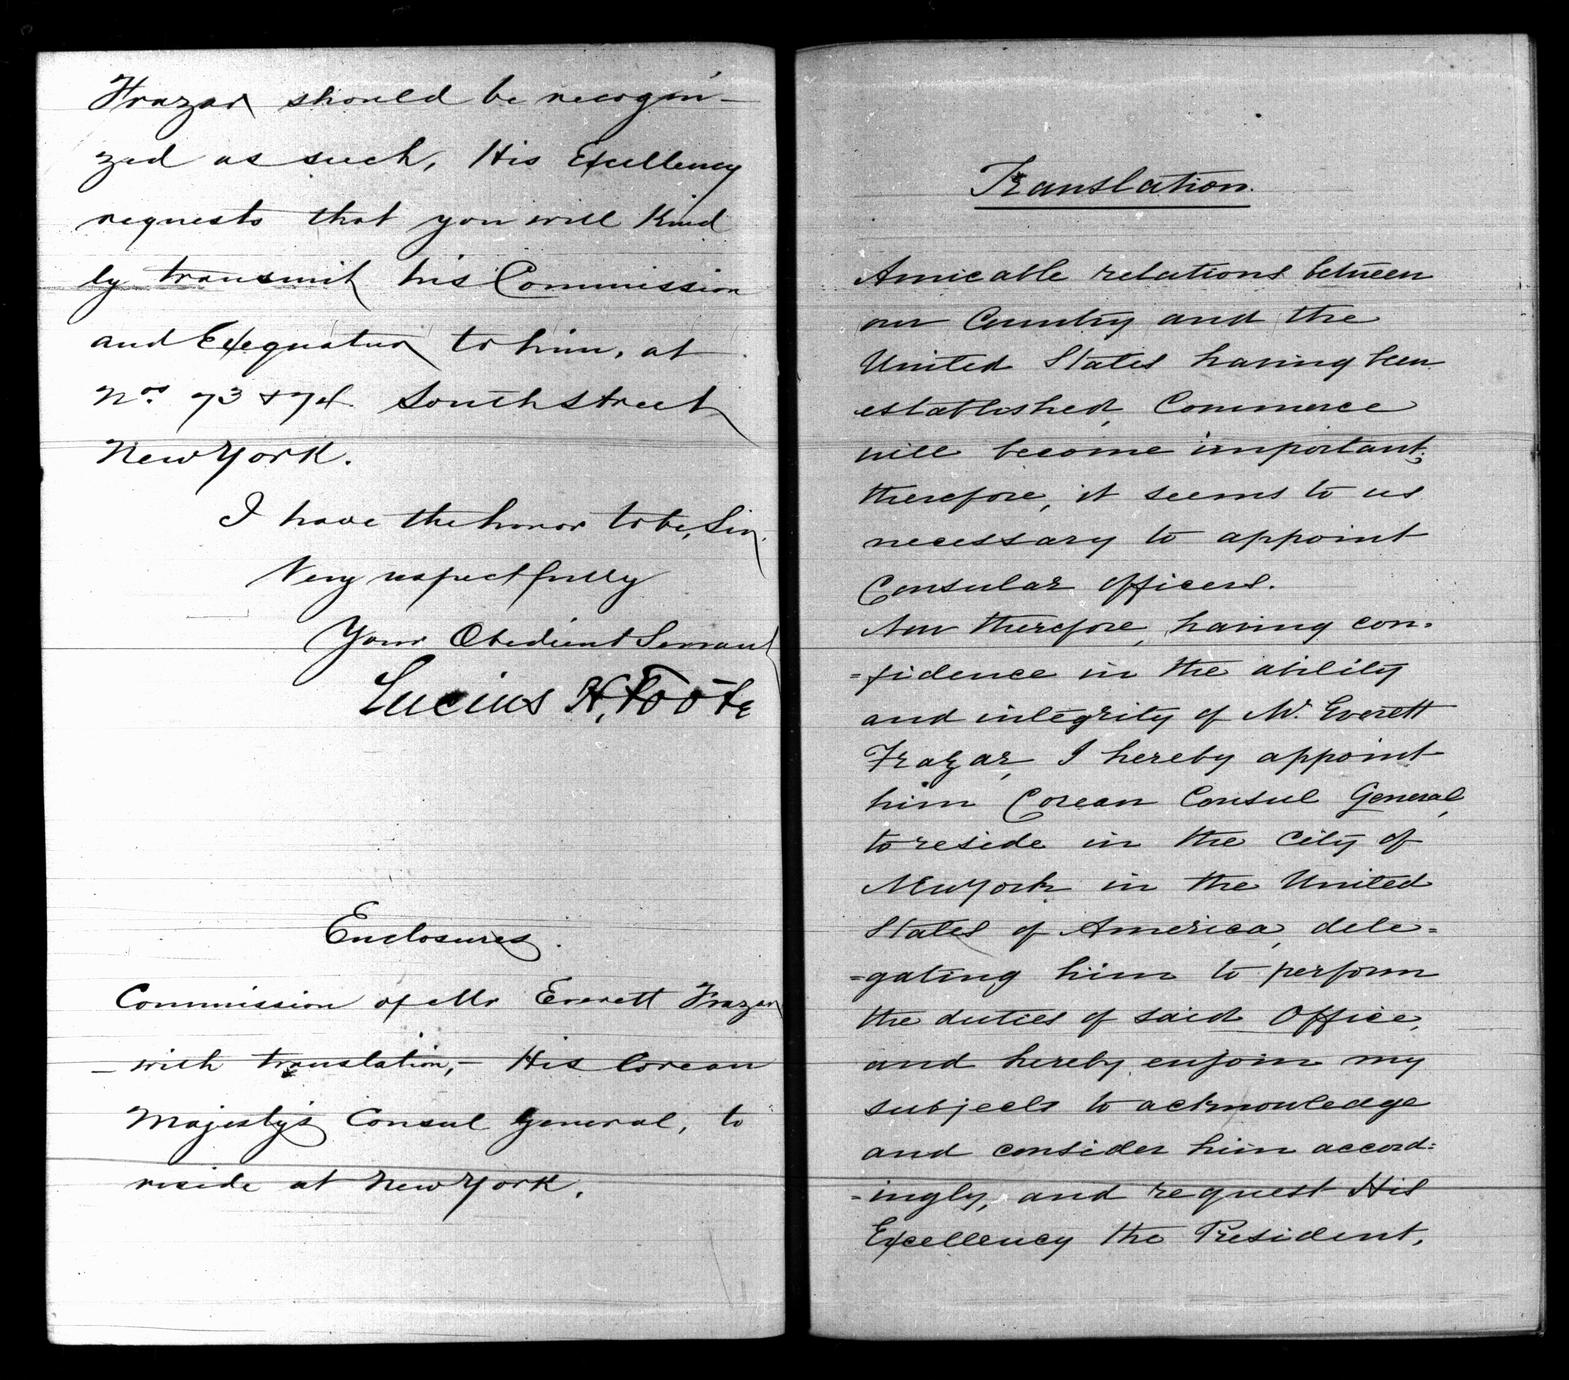 Frazar should be recogni-
zed as such, His Excellency
requests that you will kind
ly transmit his Commission
and Exequatur to him, at
Nos. 73 & 74 South street
New York.
I have the honor to be, Sir,
Very respectfully
Your Obedient Servant
Lucius H. Foote
Enclosures.
Commission of Mr Everett Frazar
- with translation, - His Corean
Majesty's Consul General, to
reside at New York.
Translation.
Amicable relations between
our Country and the
United States having been
established, Commerce
will become important;
therefore, it seems to us
necessary to appoint
Consular officers.
Now therefore, having con-
=fidence in the ability
and integrity of Mr. Everett
Frazar, I hereby appoint
him Corean Consul General,
to reside in the City of
New York in the United
States of America, dele=
=gating him to perform
the duties of said Office,
and hereby enjoin my
subjects to acknowledge
and consider him accord=
=ingly, and request His
Excellency the President,